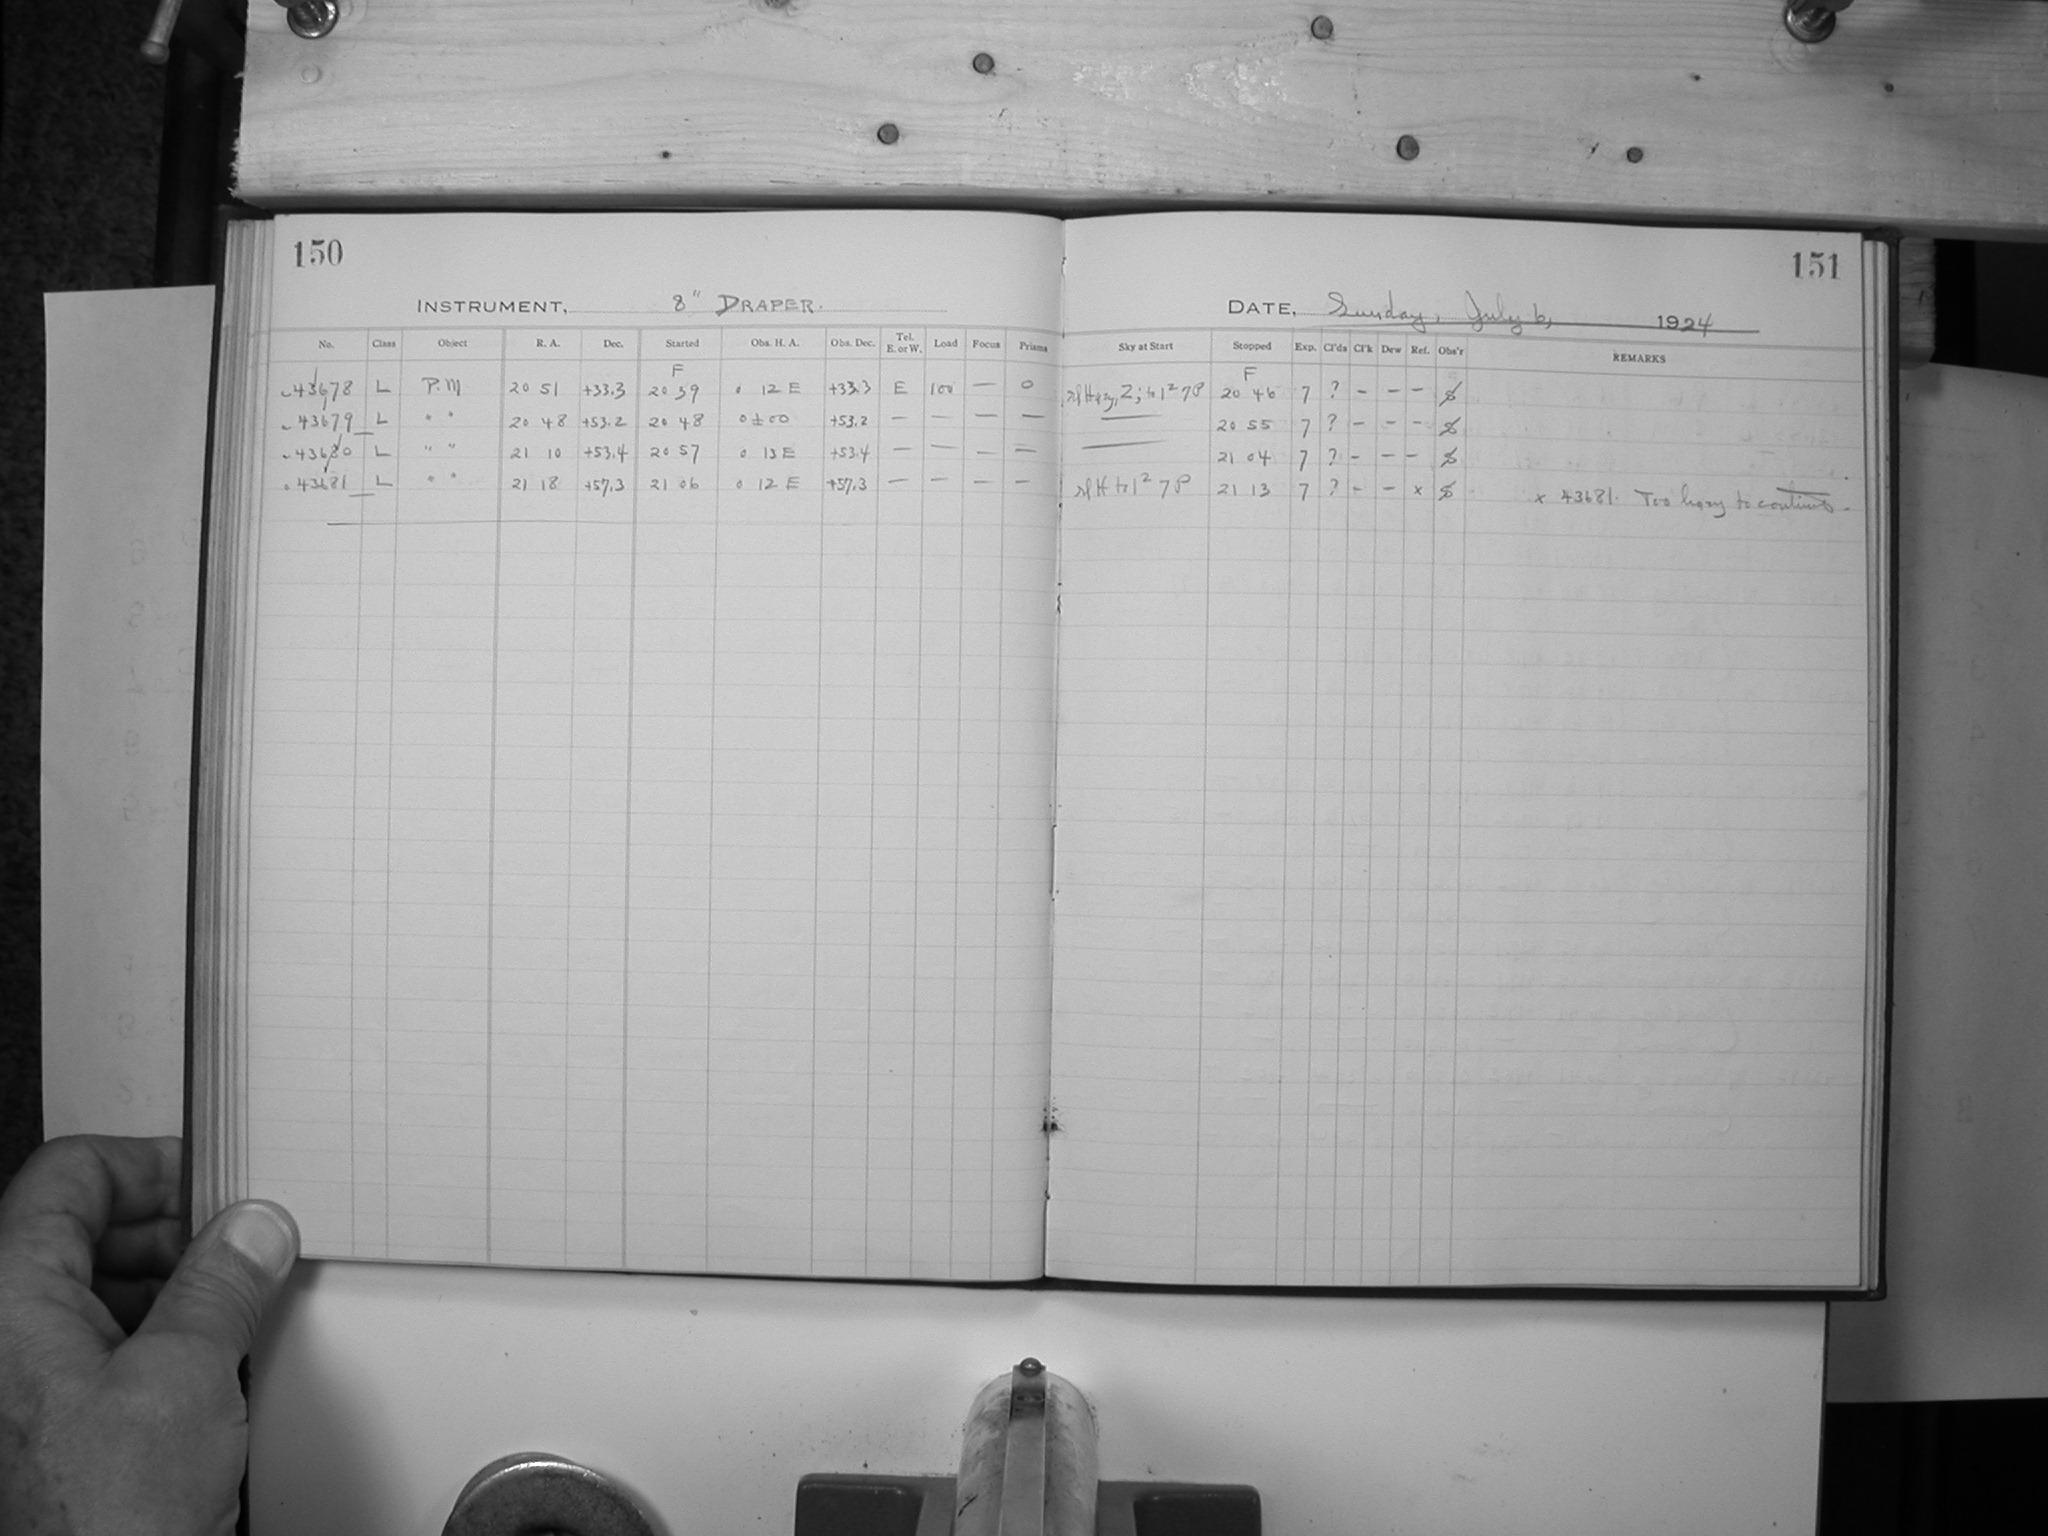 150
151
INSTRUMENT, 8" DRAPER.
DATE, Sunday, July 6, 1924
No. Class Object R. A. Dec. Started Obs. H. A. Obs. Dec. Tel. E. or W. Load Focus Prisms Sky at Start Stopped Exp. Cl'ds Cl'k Dew Ref. Obs'r REMARKS
F F
43678 L P.M 20 51 +33.3 20 39 0 12 E +33.3 E 100 — 0 Hazy, Z; to 1² 7P 20 46 7 ? – – –
43679 L " " 20 48 +53.2 20 48 0±00 +53.2 — — — — —— 20 55 7 ? – – –
43680 L " " 21 10 +53.4 20 57 0 13 E +53.4 — — — — —— 21 04 7 ? – – –
43681 L " " 21 18 +57.3 21 06 0 12 E +57.3 — — — — H to 1² 7P 21 13 7 ? – – x x 43681. Too hazy to continue.